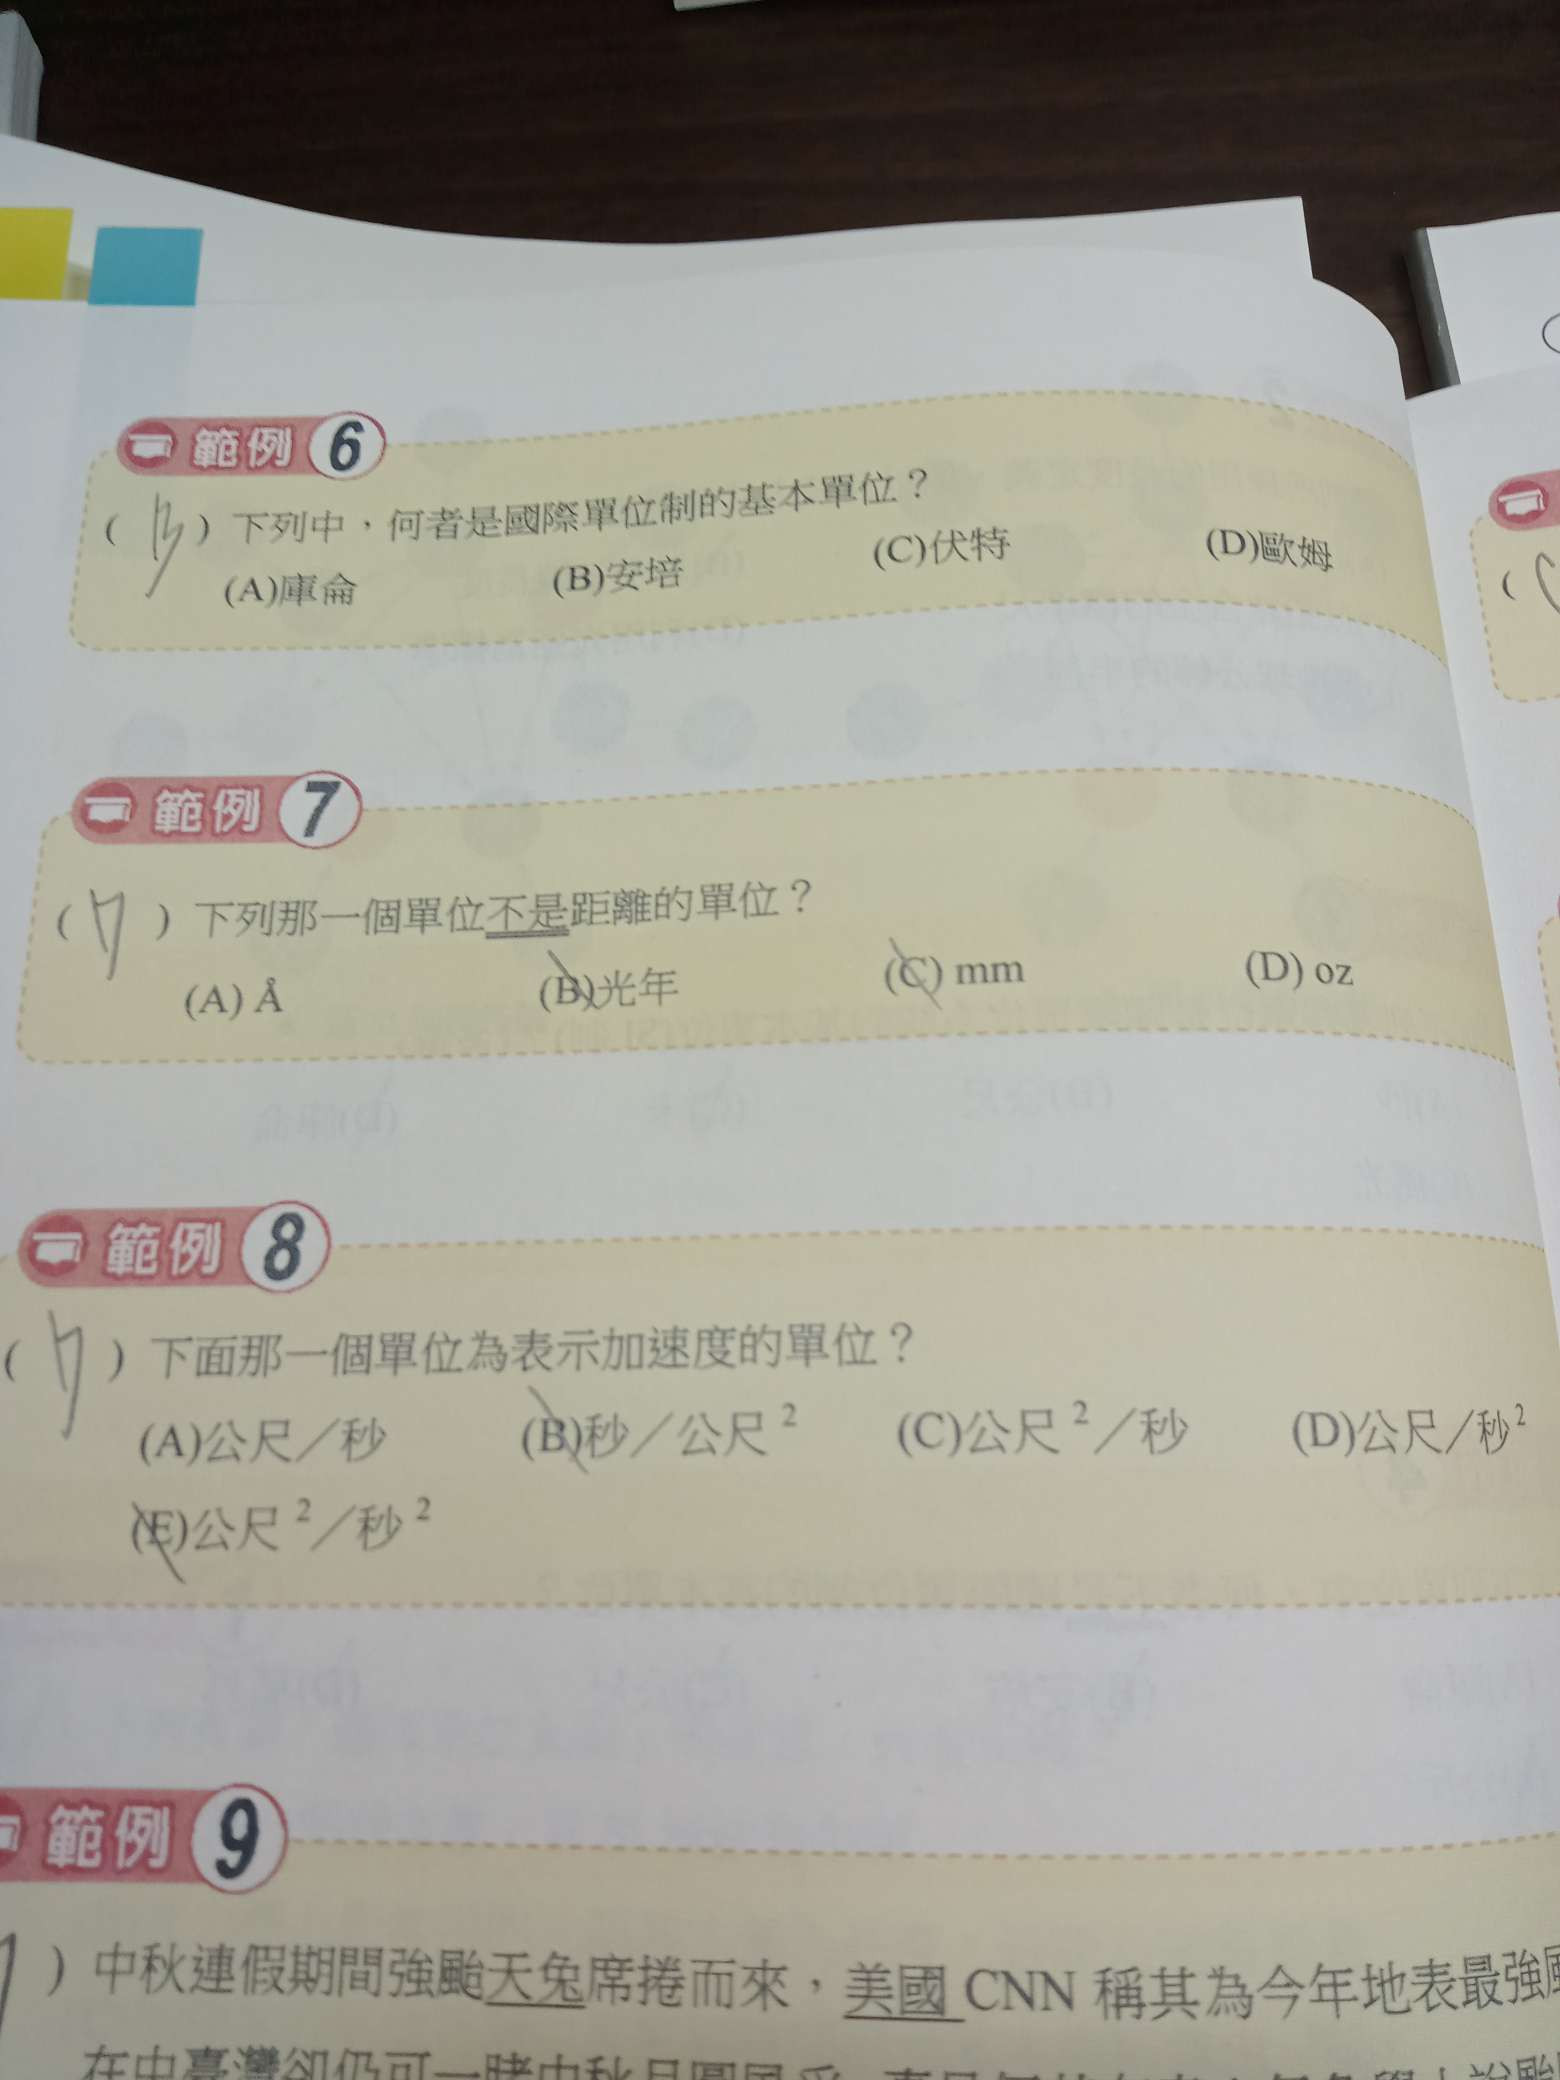 範例 6
( B ) 下列中，何者是國際單位制的基本單位？
(A)庫侖 (B)安培 (C)伏特 (D)歐姆
範例 7
( D ) 下列那一個單位不是距離的單位？
(A) Å (B)光年 (C) mm (D) oz
範例 8
( D ) 下面那一個單位為表示加速度的單位？
(A)公尺／秒 (B)秒／公尺² (C)公尺²／秒 (D)公尺／秒²
(E)公尺²／秒²
範例 9
) 中秋連假期間強颱天兔席捲而來，美國 CNN 稱其為今年地表最強
在中臺灣卻仍可一睹中秋月圓